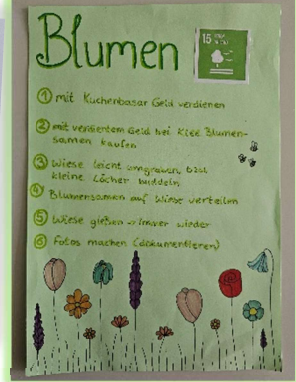 Blumen
15
① mit Kuchenbasar Geld verdienen
② mit verdientem Geld bei Kiee Blumen-
samen kaufen
③ Wiese leicht umgraben, bzw.
kleine Löcher buddeln
④ Blumensamen auf Wiese verteilen
⑤ Wiese gießen → immer wieder
⑥ Fotos machen (dokumentieren)